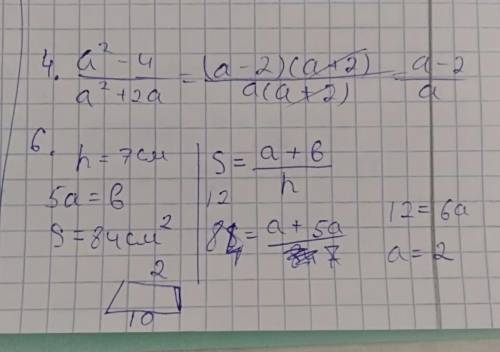 4. a² - 4 / a² + 2a = (a - 2)(a + 2) / a(a + 2) = a - 2 / a
6.
h = 7 см
5a = в
S = 84 см²
2
10
S = a + в / h
12
84 = a + 5a / 7
12 = 6a
a = 2